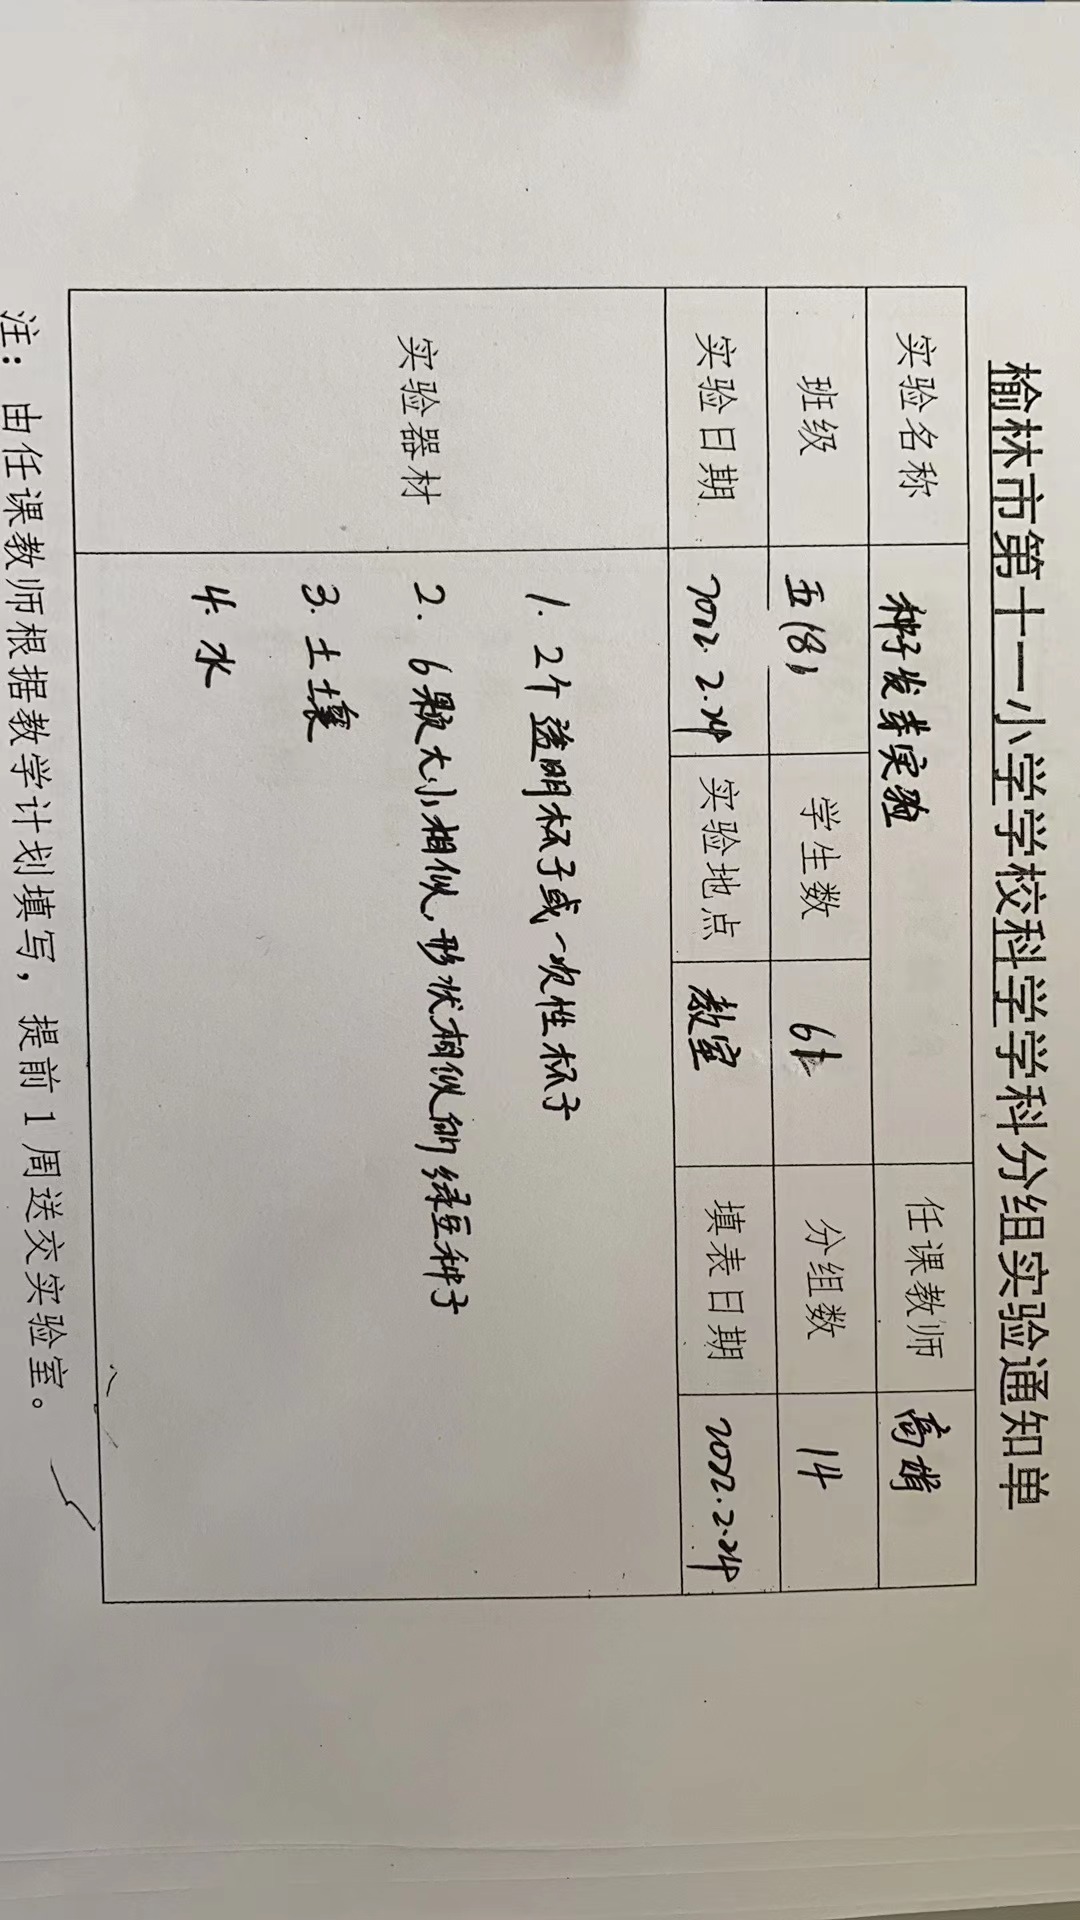 榆林市第十一小学学校科学学科分组实验通知单
实验名称 种子发芽实验 任课教师 高娟
班级 五(8) 学生数 学生数 分组数 14
实验日期 2022.2.24 实验地点 教室 填表日期 2022.2.24
实验器材
1. 2个透明杯子或一次性杯子
2. 6颗大小相似,形状相似的绿豆种子
3. 土壤
4. 水
注：由任课教师根据教学计划填写，提前1周送交实验室。